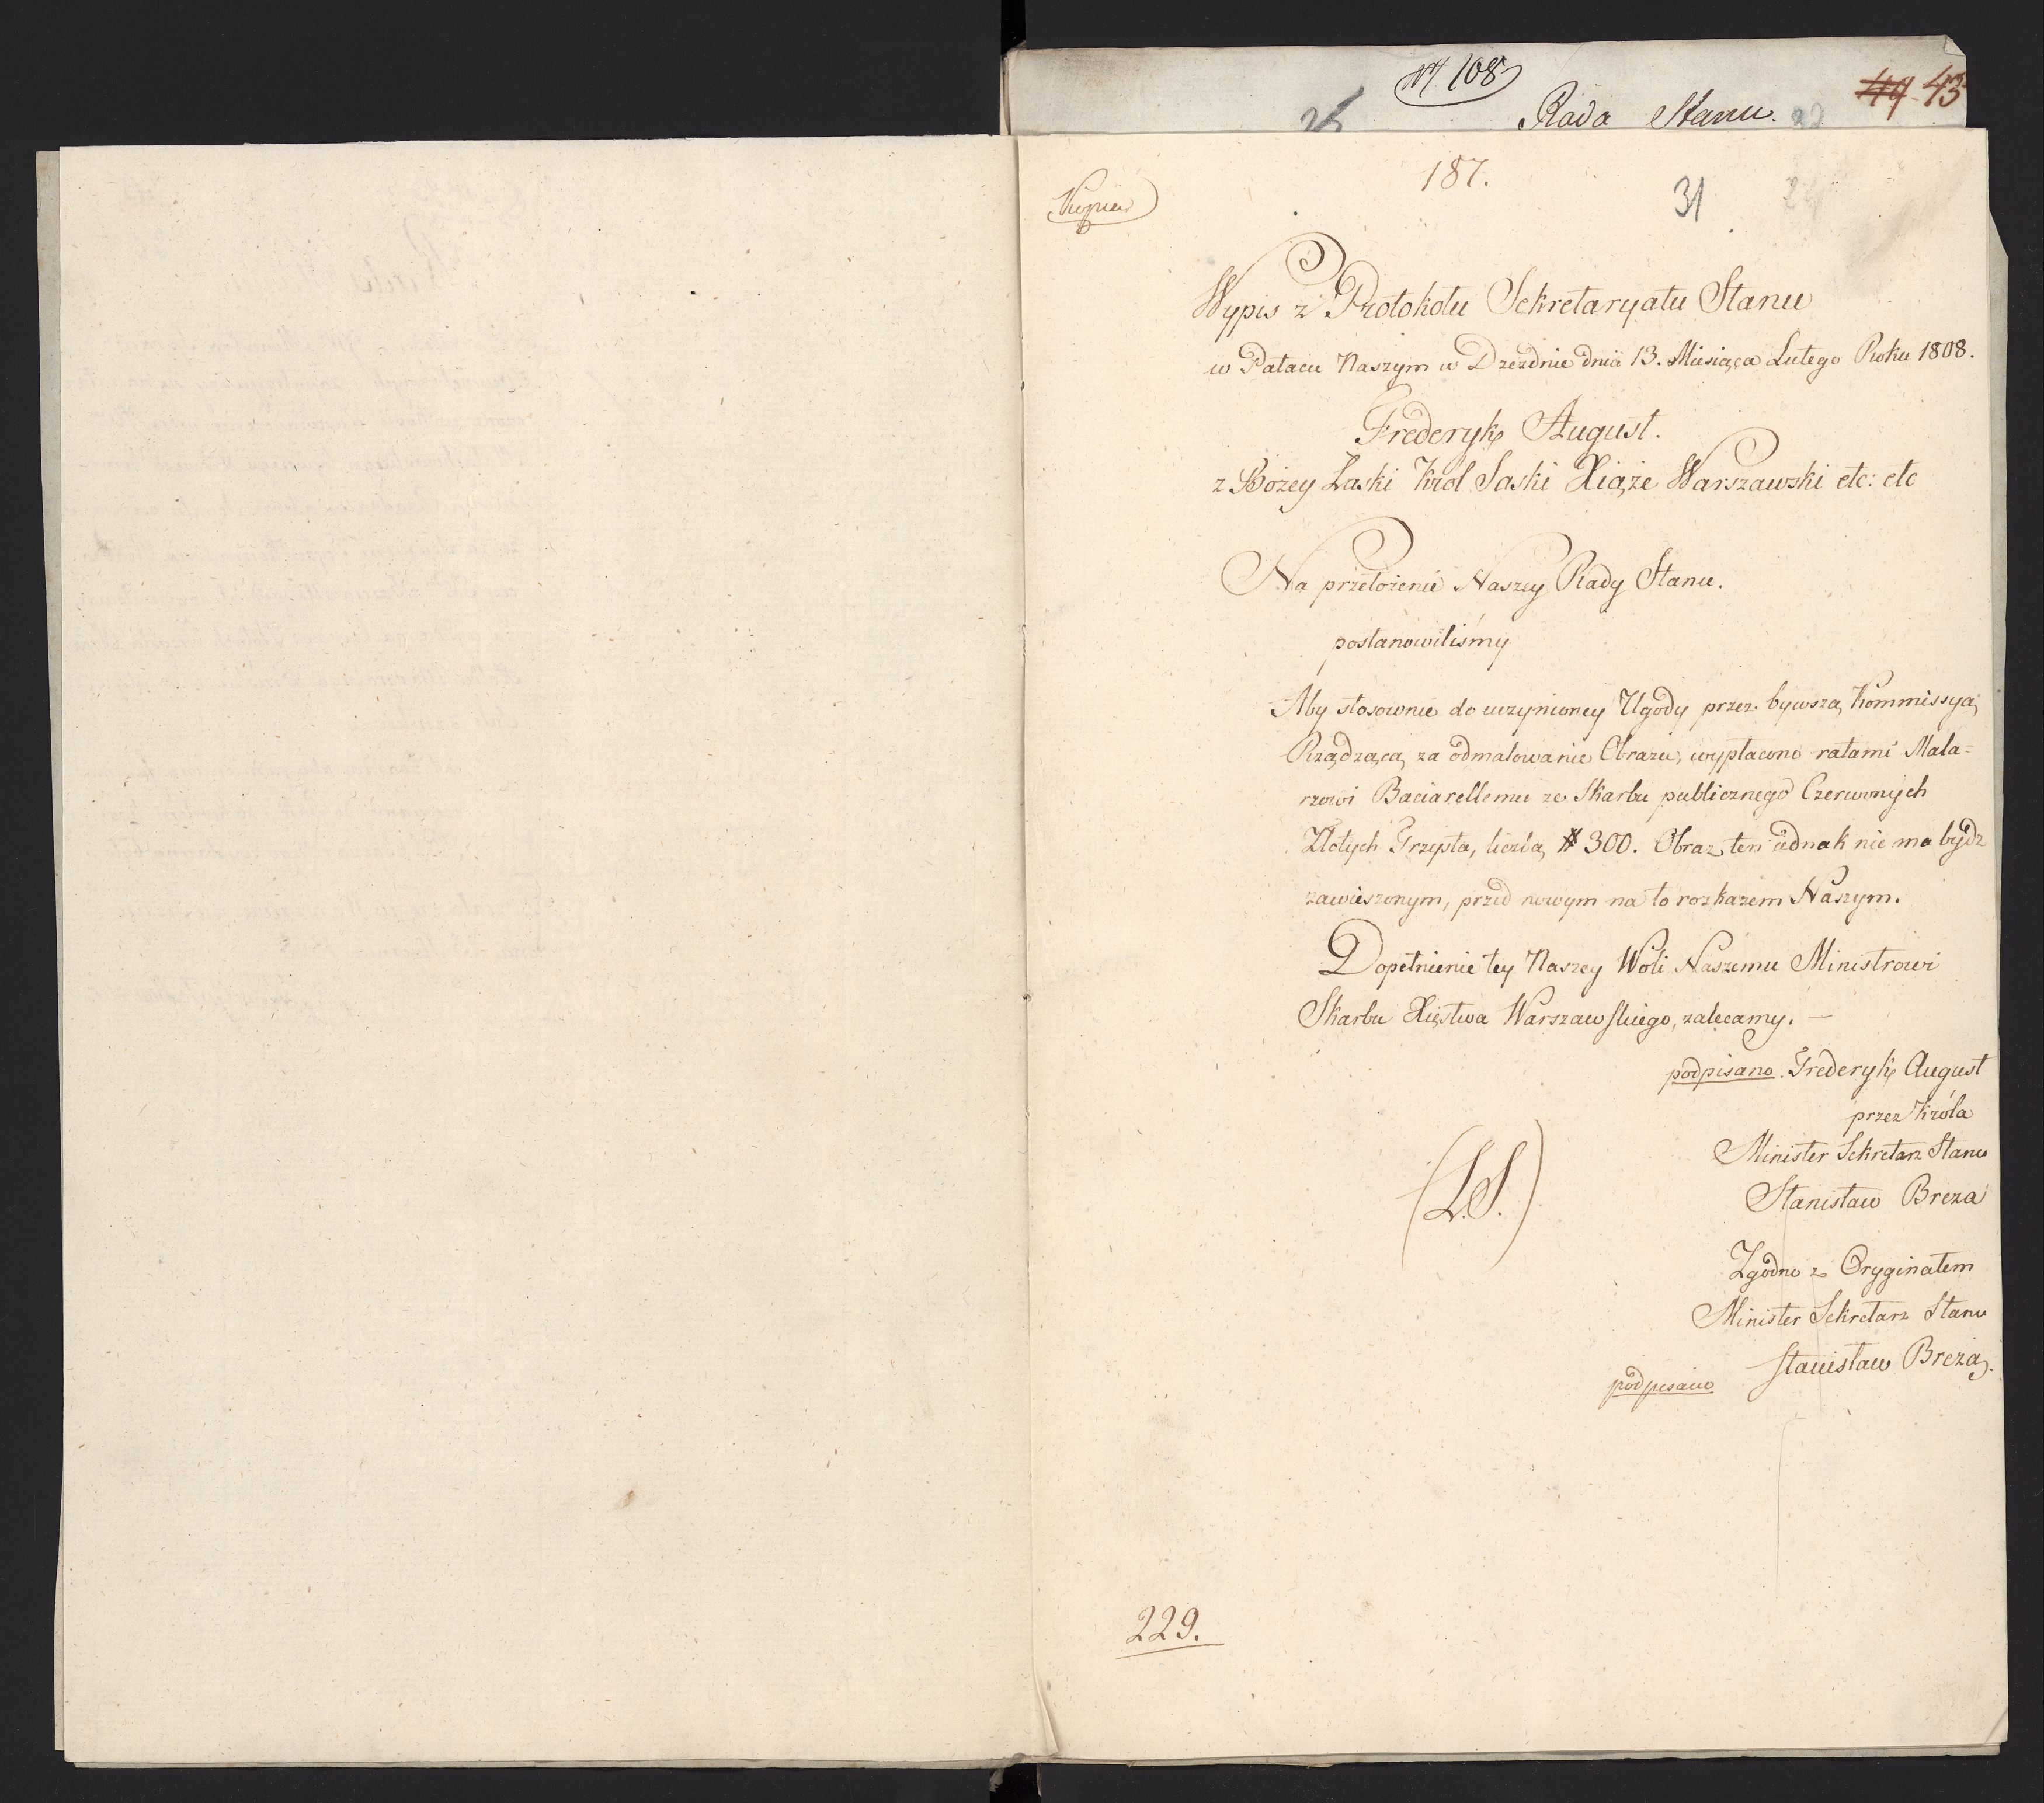 N 108
Rada Stanu.
44 43
187.
31
Kopia
Wypis z Protokołu Sekretaryatu Stanu
w Pałacu Naszym w Dreźnie dnia 13. Miesiąca Lutego Roku 1808.
Frederyk August.
z Bożey Łaski Król Saski Xiąże Warszawski etc: etc
Na przełożenie Naszey Rady Stanu.
postanowiliśmy
Aby stosownie do uczynioney Ugody przez bywszą Kommissyą
Rządzącą za odmalowanie Obrazu, wypłacono ratami Mala=
rzowi Baciarellemu ze Skarbu publicznego Czerwonych
Złotych Trzysta, liczbą # 300. Obraz ten iednak nie ma bydź
zawieszonym, przed nowym na to rozkazem Naszym.
Dopełnienie tey Naszey Woli Naszemu Ministrowi
Skarbu Xięstwa Warszawskiego, zalecamy. —
podpisano. Frederyk August
przez Króla
Minister Sekretarz Stanu
(L.S.)
Stanisław Breza
Zgodno z Oryginałem
Minister Sekretarz Stanu
Stanisław Breza.
podpisano
229.